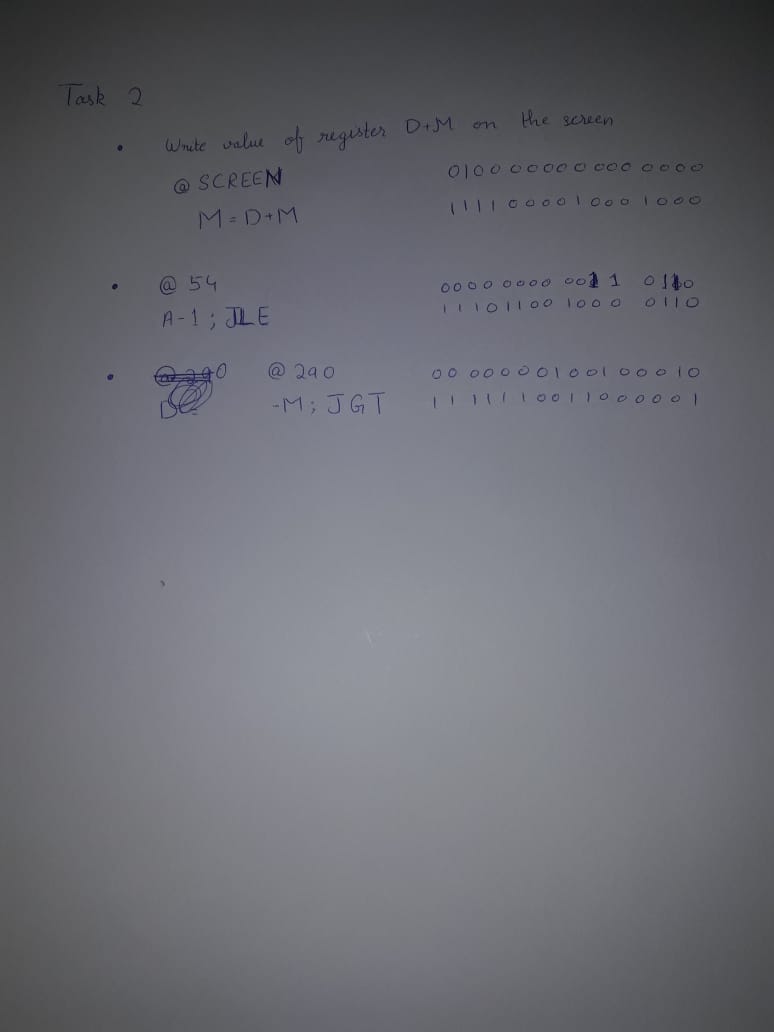 Task 2
• Write value of register D+M on the screen
@ SCREEN 0100 0000 0000 0000
M = D+M 1111 0000 1000 1000
• @ 54 0000 0000 0011 0110
A-1 ; JLE 1110 1100 1000 0110
• @ 290 0000 0001 0010 0010
-M ; JGT 1111 1100 1100 0001